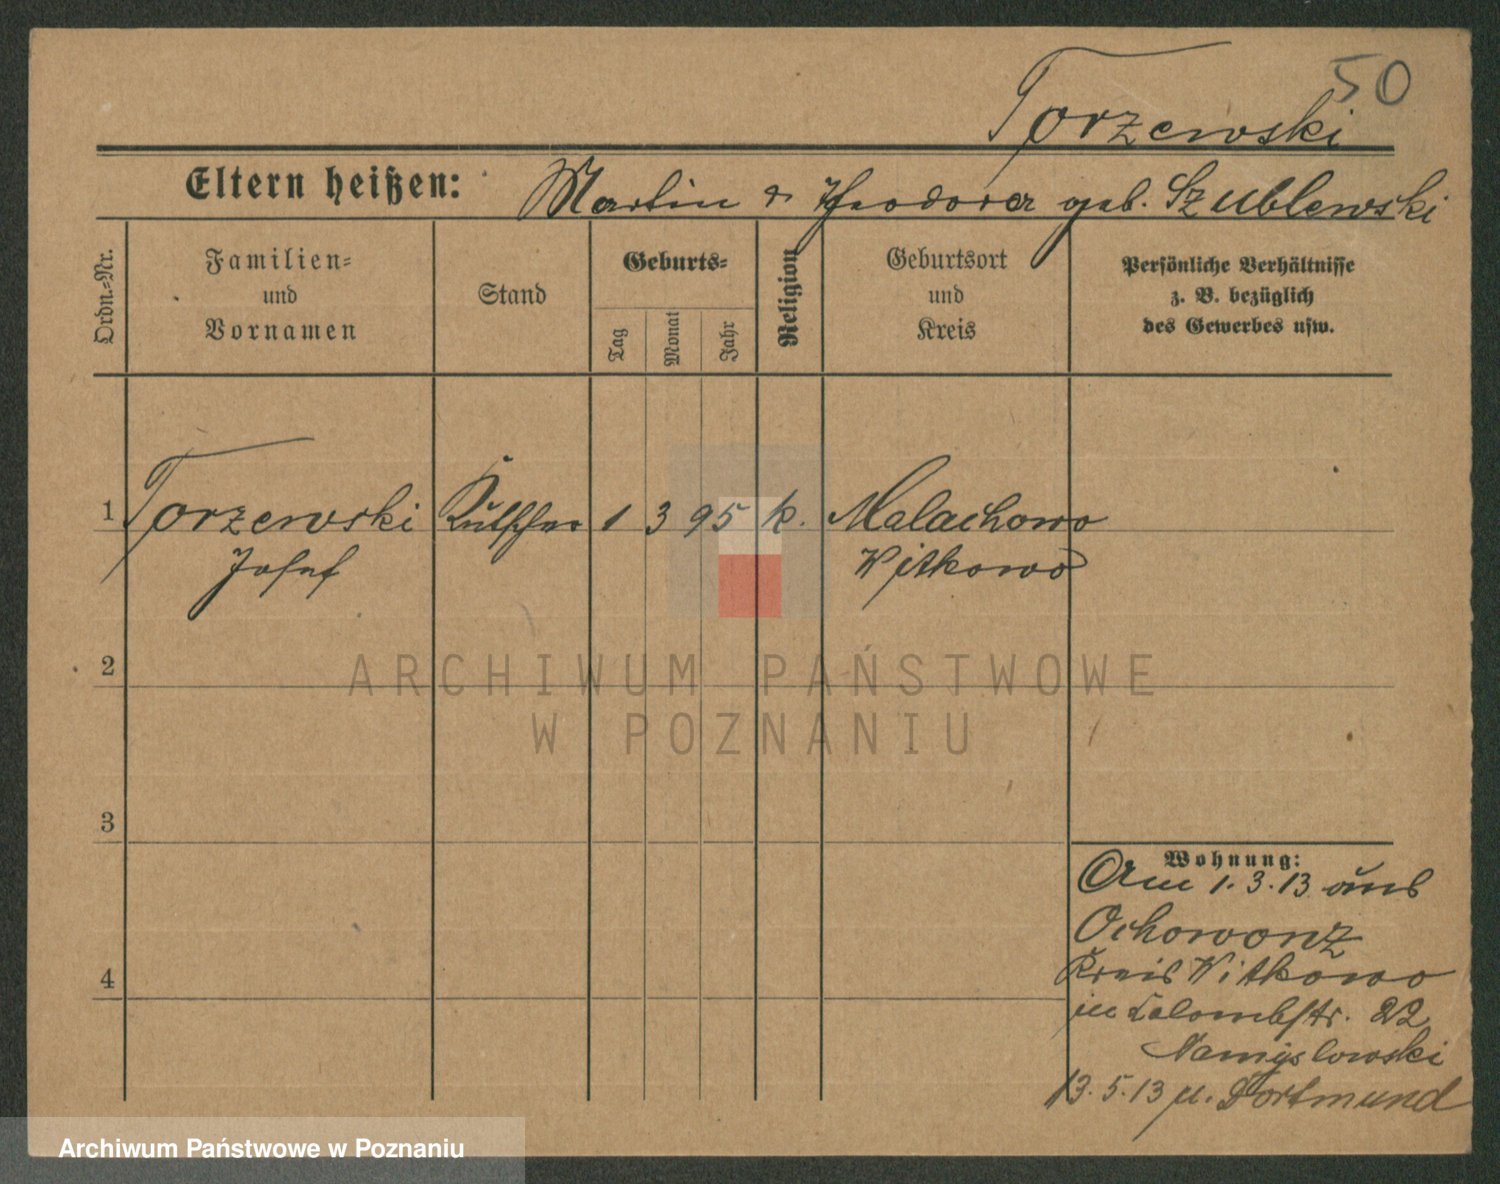 50
Torzewski
Eltern heißen: Martin & Theodora geb. Szublewski
Ordn.=Nr.
Familien=
und
Vornamen
Stand
Geburts=
Tag
Monat
Jahr
Religion
Geburtsort
und
Kreis
Persönliche Verhältnisse
z. B. bezüglich
des Gewerbes usw.
1 Torzewski Kutscher 1 3 95 k. Malachowo
Josef Witkowo
2
ARCHIWUM PAŃSTWOWE
W POZNANIU
3
Wohnung:
Am 1.3.13 aus
Ochowonz
Kreis Witkowo
in 22
Namyslowski
13.5.13 n. Dortmund
4
Archiwum Państwowe w Poznaniu